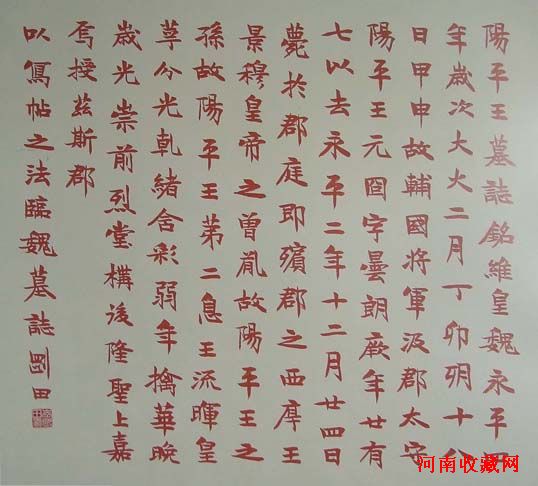 陽平王墓誌銘維皇魏永平四
年歲次大火二月丁卯朔十八
日甲申故輔國將軍汲郡太守
陽平王元冏字曇朗厥年廿有
七以去永平二年十二月廿四日
薨於郡庭即殯郡之西序王
景穆皇帝之曾胤故陽平王之
孫故陽平王苐二息王流暉皇
萼分光乾緒含彩弱年擒華晚
歲光崇前烈堂構後隆聖上嘉
焉授茲斯郡
以寫帖之法臨魏墓誌劉田
河南收藏网